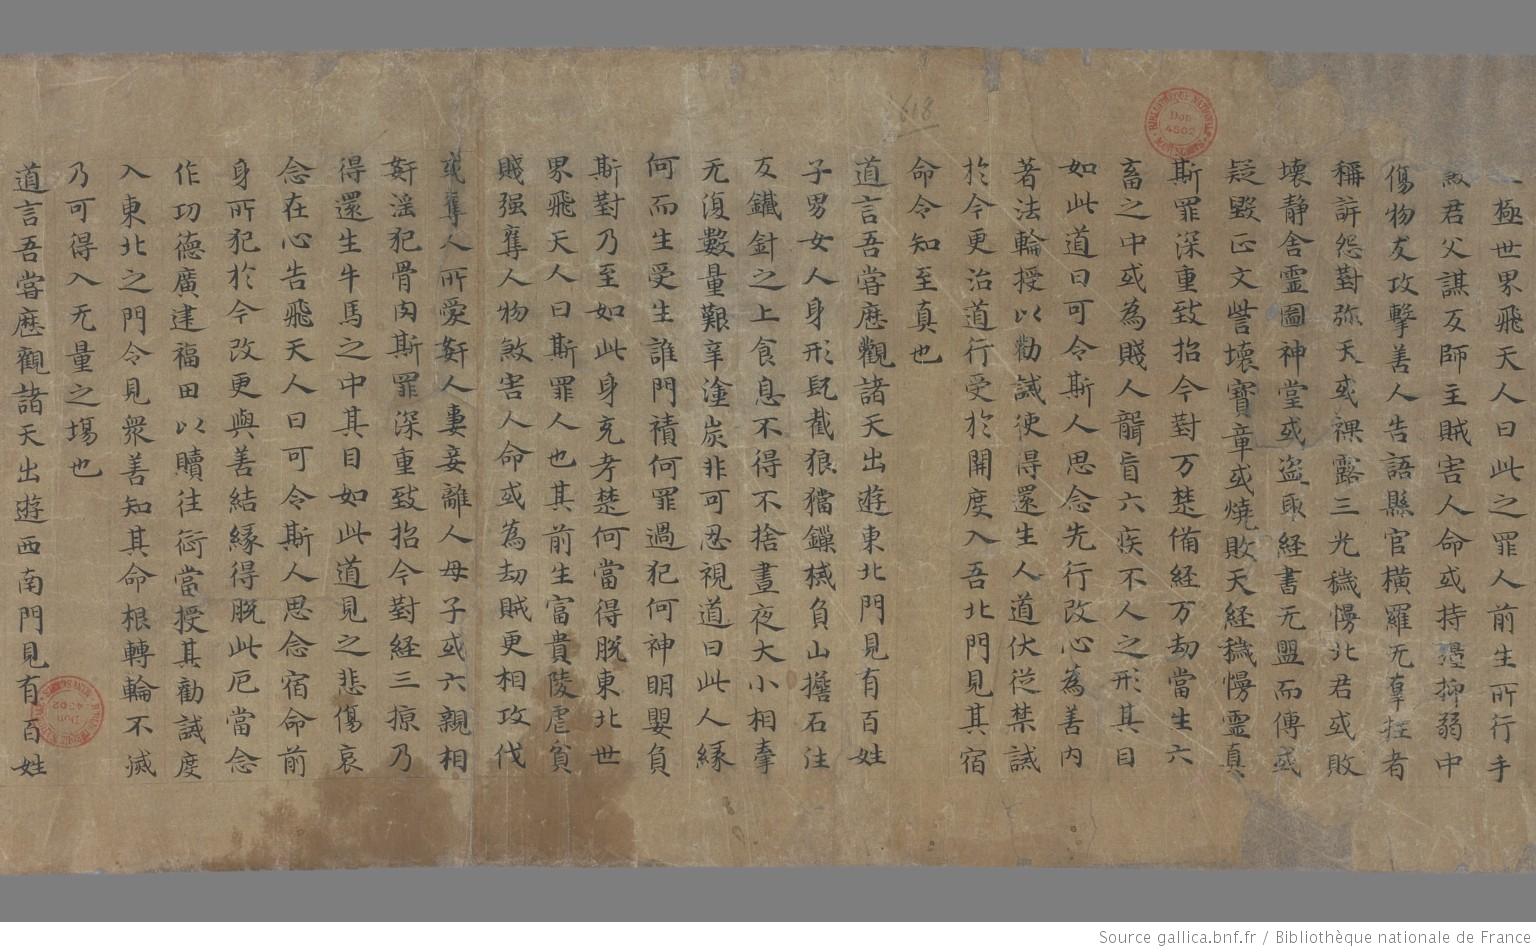 極世界飛天人曰此之罪人前生所行手
煞君父謀反師主賊害人命或持彊抑弱中
傷物友攻擊善人告語縣官橫羅无辜拄者
稱訴怨對弥天或裸露三光穢慢北君或敗
壞静舍靈圖神堂或盜取経書无盟而傳或
疑毀正文訾壞寶章或燒敗天経穢慢靈真
斯罪深重致招今對万楚備経万劫當生六
畜之中或為賤人聾盲六疾不人之形其目
如此道曰可令斯人思念先行改心為善内
著法輪授以勸誡使得還生人道伏從禁誡
於今更治道行受於開度入吾北門見其宿
命令知至真也
道言吾嘗歷觀諸天出遊東北門見有百姓
子男女人身形毀截狼犳鏁械負山擔石注
反鐵針之上食息不得不捨晝夜大小相牽
无復數量艱辛塗炭非可忍視道曰此人緣
何而生受生誰門積何罪過犯何神明嬰負
斯對乃至如此身充考楚何當得脫東北世
界飛天人曰斯罪人也其前生富貴陵虐貧
賤强奪人物煞害人命或為劫賊更相攻伐
或奪人所愛姧人妻妾離人母子或六親相
姧滛犯骨肉斯罪深重致招今對経三掠乃
得還生牛馬之中其目如此道見之悲傷哀
念在心告飛天人曰可令斯人思念宿命前
身所犯於今改更與善結緣得脫此厄當念
作功德廣建福田以贖往衍當授其勸誡度
入東北之門令見衆善知其命根轉輪不滅
乃可得入无量之塲也
道言吾嘗歷觀諸天出遊西南門見有百姓
618
BIBLIOTHÈQUE NATIONALE
Don
4502
MANUSCRITS
Don
4502
Source gallica.bnf.fr / Bibliothèque nationale de France